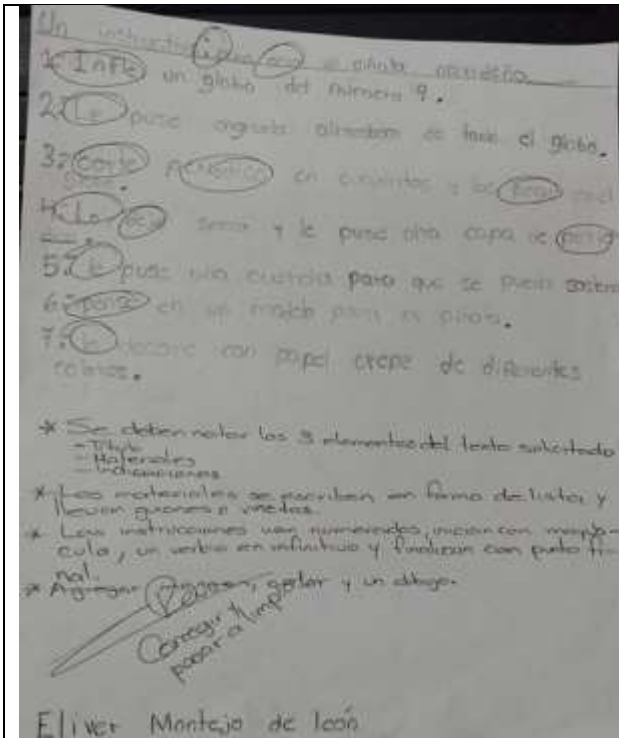 Un instructivo para una piñata
1: Infle un globo del número 9.
2: Le puse alrededor de todo el globo.
3: corte periódico en y los
4: Lo deje secar y le puse otra capa de
5: Le puse una cuerda para que se pueda
6: pense en un para la piñata.
7: Le decore con papel crepe de diferentes
colores.
* Se deben notar los 3 elementos del texto solicitado
- Título
- Materiales
- Indicaciones
* Los materiales se escriben en forma de lista y
llevan guiones o viñetas.
* Las instrucciones van numeradas, inician con mayús-
cula, un verbo en infinitivo y finalizan con punto fi-
nal.
* Agregar color y un dibujo.
Corregir y
pasar a limp
Eliver Montejo de león